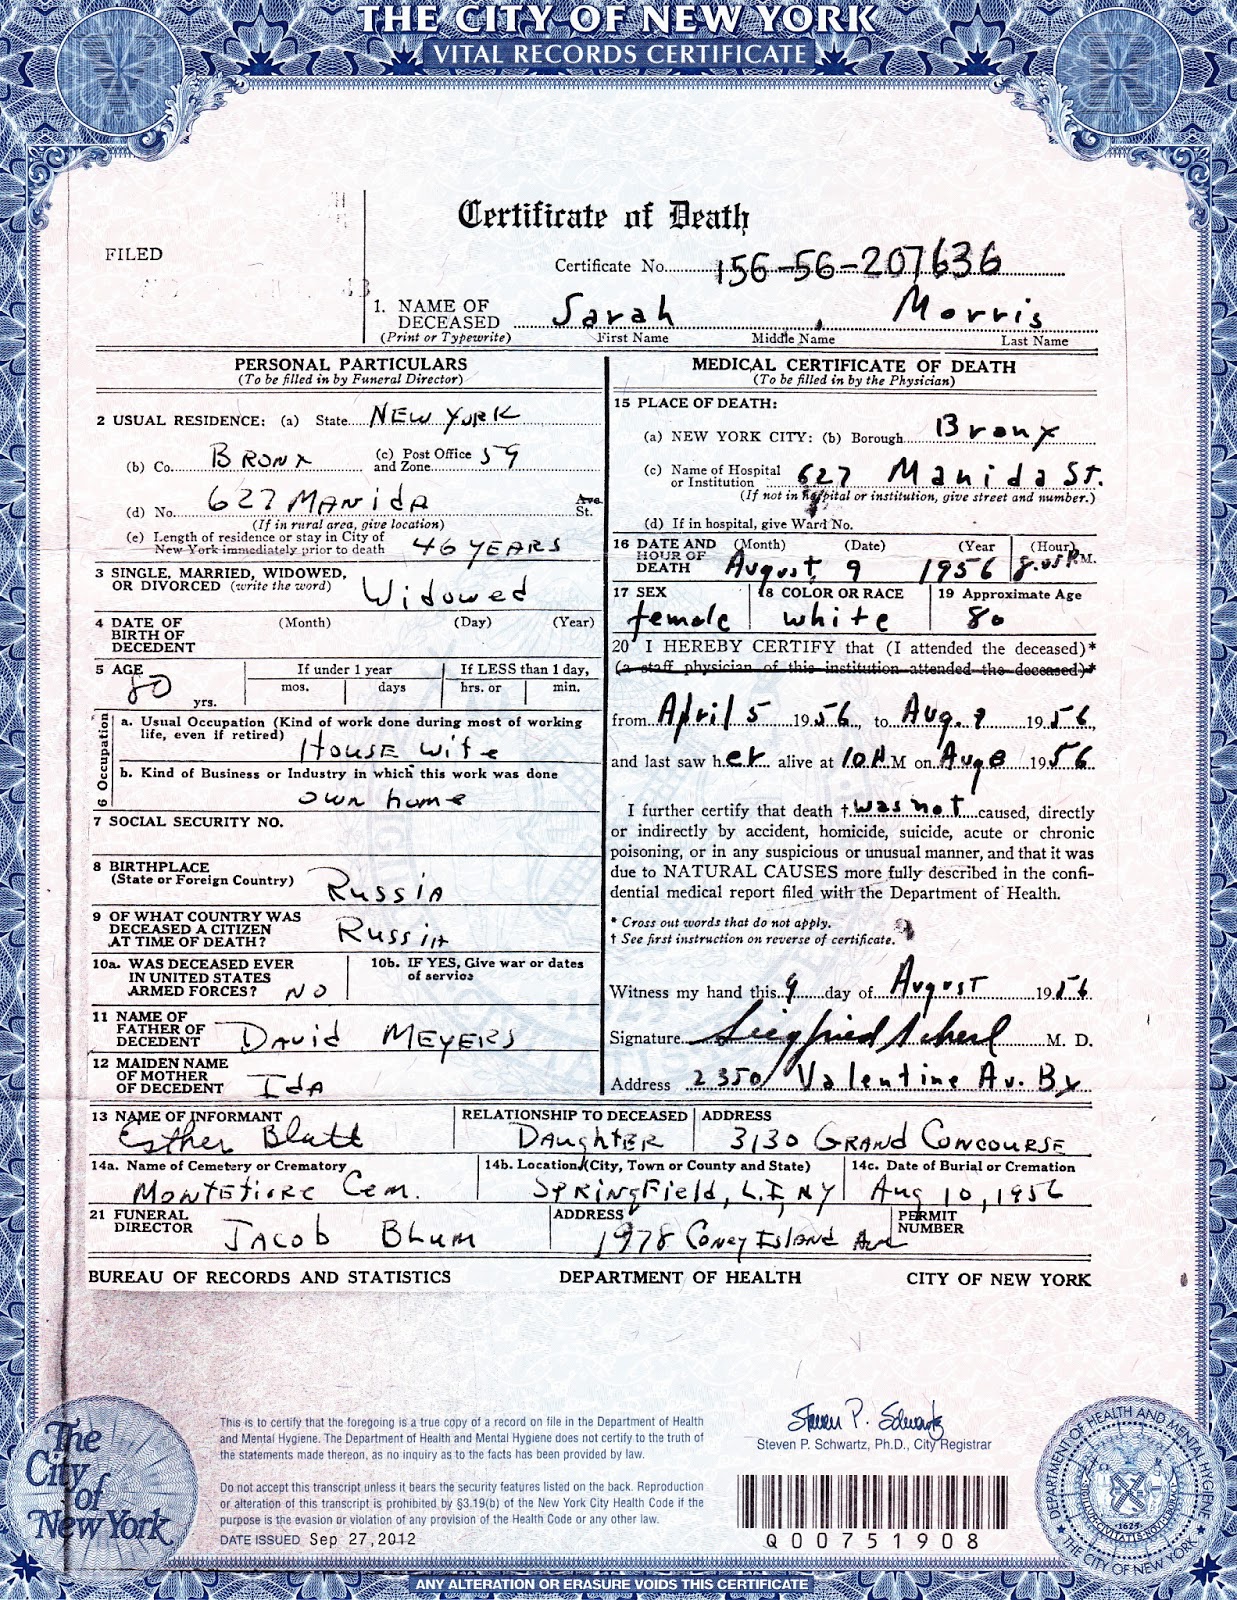 THE CITY OF NEW YORK
VITAL RECORDS CERTIFICATE
Certificate of Death
FILED
Certificate No. 156-56-207636
1. NAME OF DECEASED Sarah Morris
(Print or Typewrite) First Name Middle Name Last Name
PERSONAL PARTICULARS
(To be filled in by Funeral Director)
2 USUAL RESIDENCE: (a) State NEW YORK
(b) Co. BRONX (c) Post Office and Zone 59
(d) No. 627 MANIDA Ave. St.
(If in rural area, give location)
(e) Length of residence or stay in City of
New York immediately prior to death 46 YEARS
3 SINGLE, MARRIED, WIDOWED,
OR DIVORCED (write the word) Widowed
4 DATE OF BIRTH OF DECEDENT (Month) (Day) (Year)
5 AGE 80 yrs. If under 1 year mos. days If LESS than 1 day, hrs. or min.
6 Occupation
a. Usual Occupation (Kind of work done during most of working
life, even if retired) House wife
b. Kind of Business or Industry in which this work was done
own home
7 SOCIAL SECURITY NO.
8 BIRTHPLACE
(State or Foreign Country) Russia
9 OF WHAT COUNTRY WAS
DECEASED A CITIZEN
AT TIME OF DEATH? Russia
10a. WAS DECEASED EVER
IN UNITED STATES
ARMED FORCES? NO
10b. IF YES, Give war or dates
of service
11 NAME OF
FATHER OF
DECEDENT David MEYERS
12 MAIDEN NAME
OF MOTHER
OF DECEDENT Ida
MEDICAL CERTIFICATE OF DEATH
(To be filled in by the Physician)
15 PLACE OF DEATH:
(a) NEW YORK CITY: (b) Borough Bronx
(c) Name of Hospital
or Institution 627 Manida St.
(If not in hospital or institution, give street and number.)
(d) If in hospital, give Ward No.
16 DATE AND HOUR OF DEATH (Month) August (Date) 9 (Year 1956 (Hour) 8:05 P.M.
17 SEX female 18 COLOR OR RACE white 19 Approximate Age 80
20 I HEREBY CERTIFY that (I attended the deceased)*
(a staff physician of this institution attended the deceased)*
from April 5 1956, to Aug. 9 1956,
and last saw her alive at M on Aug 8 1956
I further certify that death † was not caused, directly
or indirectly by accident, homicide, suicide, acute or chronic
poisoning, or in any suspicious or unusual manner, and that it was
due to NATURAL CAUSES more fully described in the confi-
dential medical report filed with the Department of Health.
* Cross out words that do not apply.
† See first instruction on reverse of certificate.
Witness my hand this 9 day of August 1956
Signature Siegfried Scherl M. D.
Address 2350 Valentine Av. Bx
13 NAME OF INFORMANT Esther Blatt RELATIONSHIP TO DECEASED Daughter ADDRESS 3130 GRAND CONCOURSE
14a. Name of Cemetery or Crematory Montefiore Cem. 14b. Location (City, Town or County and State) Springfield, L.I, NY 14c. Date of Burial or Cremation Aug 10, 1956
21 FUNERAL DIRECTOR Jacob Blum ADDRESS 1978 Coney Island Ave PERMIT NUMBER
BUREAU OF RECORDS AND STATISTICS DEPARTMENT OF HEALTH CITY OF NEW YORK
This is to certify that the foregoing is a true copy of a record on file in the Department of Health
and Mental Hygiene. The Department of Health and Mental Hygiene does not certify to the truth of
the statements made thereon, as no inquiry as to the facts has been provided by law.
Do not accept this transcript unless it bears the security features listed on the back. Reproduction
or alteration of this transcript is prohibited by §3.19(b) of the New York City Health Code if the
purpose is the evasion or violation of any provision of the Health Code or any other law.
DATE ISSUED Sep 27,2012
Steven P. Schwartz
Steven P. Schwartz, Ph.D., City Registrar
Q00751908
The
City
of
New York
DEPARTMENT OF HEALTH AND MENTAL HYGIENE
THE CITY OF NEW YORK
1625
ANY ALTERATION OR ERASURE VOIDS THIS CERTIFICATE